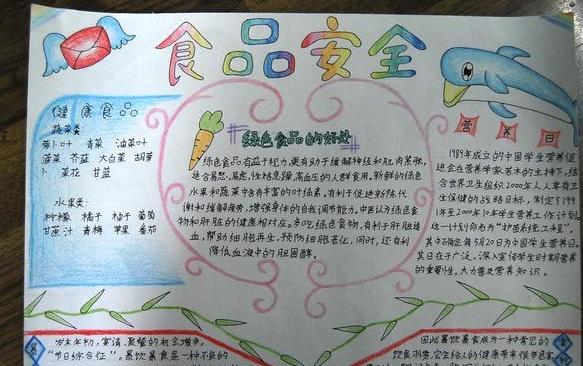 食品安全
健康食品
蔬菜类:
萝卜叶 青菜 油菜叶
菠菜 芥蓝 大白菜 胡萝
卜 菜花 韭菜
水果类:
柠檬 橘子 柚子 葡萄
甘蔗汁 青梅 苹果 番茄
绿色食品的好处
绿色食品有益于视力,更有助于缓解神经和肌肉紧张,
适合易怒,易虑,性格急躁,高血压的人群食用,新鲜的绿色
水果和蔬菜中含有丰富的叶绿素,有利于促进新陈代
谢和缓解疲劳,增强身体的自我调节能力,中医认为绿色食
物和肝脏的健康相对应。多吃绿色食物,有利于肝脏造
血,帮助细胞再生,预防细胞老化,同时,还有利
降低血液中的胆固醇。
营养日
1989年成立的中国学生营养促
进会在营养学家若木的主持下,结
合世界卫生组织2000年人人享有卫
生保健的战略目标,制定了199
1年至2000年10年学生营养工作计划
这一计划命名为“护苗系统工程”,
其中确定每年5月20日为中国学生营养日。
其目在于广泛、深入宣传学生时期营养
的重要性,大力普及营养知识。
岁末年初,宴请、聚餐的机会增多,
“节日综合征”。暴饮暴食是一种不良的
因此暴饮暴食成为一种常见的
饮食习惯,它会给人的健康带来很多危害